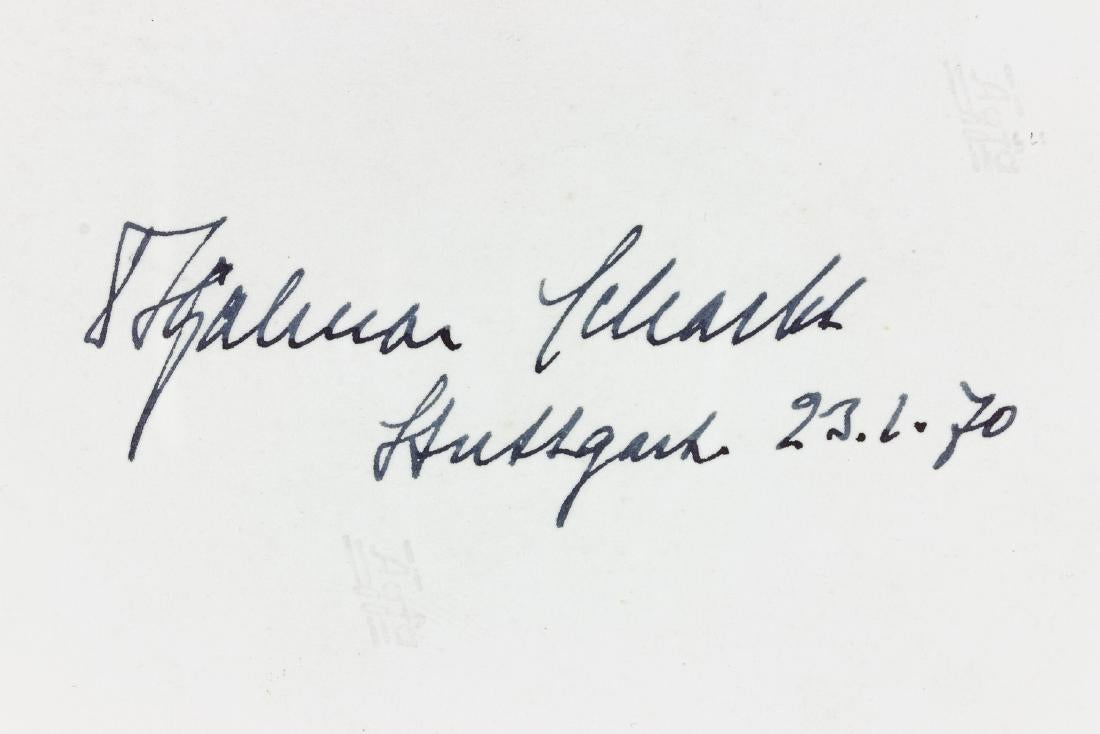 Hjalmar Schacht
Stuttgart. 23.1.70